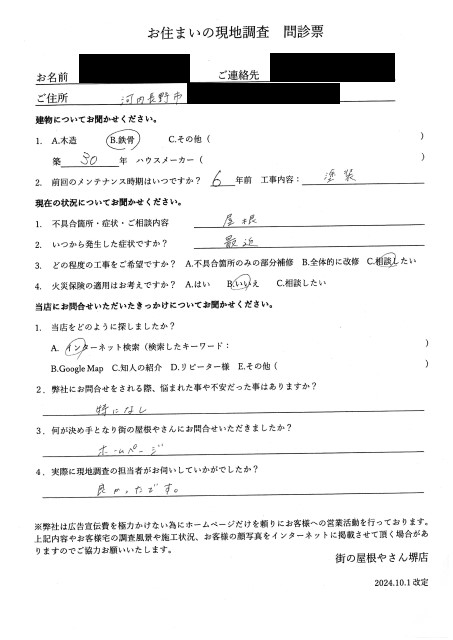 お住まいの現地調査　問診票
お名前　ご連絡先
ご住所　河内長野市
建物についてお聞かせください。
1.　A.木造　B.鉄骨　C.その他（　）
築　30　年　ハウスメーカー（　）
2.　前回のメンテナンス時期はいつですか？　6　年前　工事内容：　塗装
現在の状況についてお聞かせください。
1.　不具合箇所・症状・ご相談内容　屋根
2.　いつから発生した症状ですか？　最近
3.　どの程度の工事をご希望ですか？　A.不具合箇所のみの部分補修　B.全体的に改修　C.相談したい
4.　火災保険の適用はお考えですか？　A.はい　B.いいえ　C.相談したい
当店にお問合せいただいたきっかけについてお聞かせください。
1.　当店をどのように探しましたか？
A. インターネット検索（検索したキーワード：　）
B.Google Map　C.知人の紹介　D.リピーター様　E.その他（　）
2．弊社にお問合せをされる際、悩まれた事や不安だった事はありますか？
特になし
3．何が決め手となり街の屋根やさんにお問合せいただきましたか？
ホームページ
4．実際に現地調査の担当者がお伺いしていかがでしたか？
良かったです。
※弊社は広告宣伝費を極力かけない為にホームページだけを頼りにお客様への営業活動を行っております。
上記内容やお客様宅の調査風景や施工状況、お客様の顔写真をインターネットに掲載させて頂く場合があ
りますのでご協力お願いいたします。
街の屋根やさん堺店
2024.10.1 改定